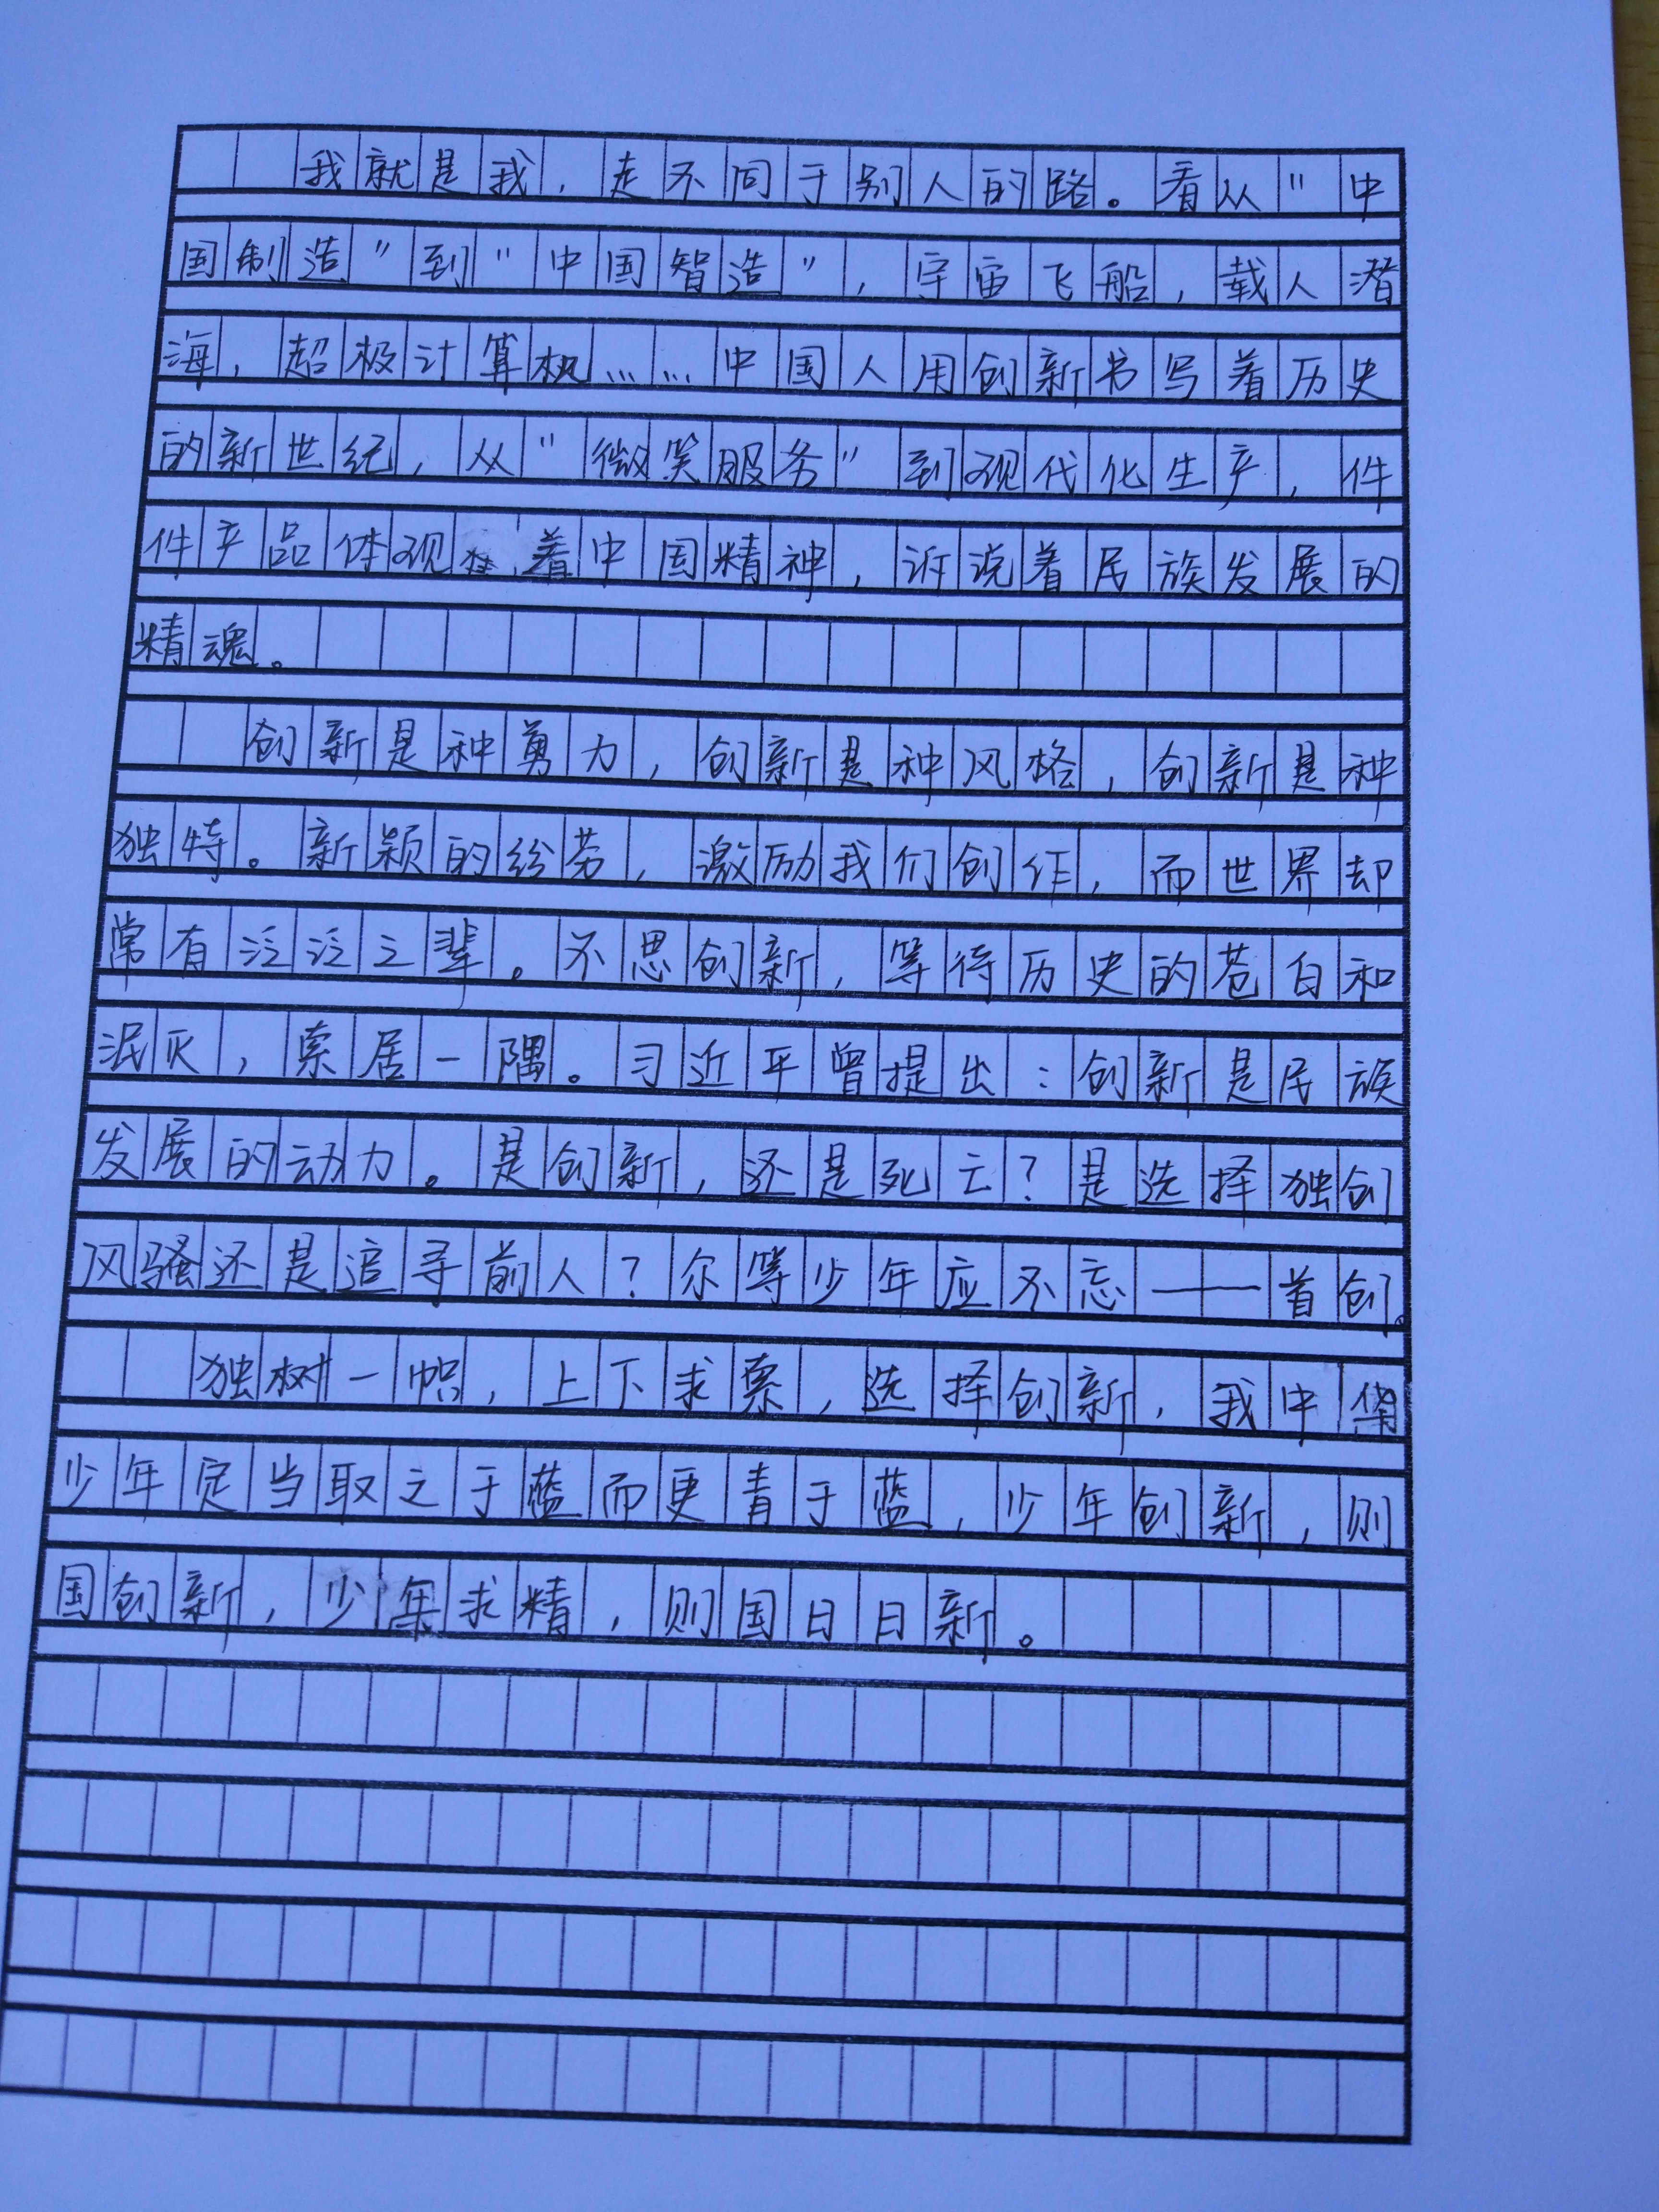 我就是我，走不同于别人的路。看从"中
国制造"到"中国智造"，宇宙飞船，载人潜
海，超极计算机……中国人用创新书写着历史
的新世纪，从"微笑服务"到现代化生产，件
件产品体现着中国精神，诉说着民族发展的
精魂。
创新是种勇力，创新是种风格，创新是种
独特。新颖的纷芳，激励我们创作，而世界却
常有泛泛之辈。不思创新，等待历史的苍白和
泯灭，索居一隅。习近平曾提出：创新是民族
发展的动力。是创新，还是死亡？是选择独创
风骚还是追寻前人？尔等少年应不忘——首创。
独树一帜，上下求索，选择创新，我中华
少年定当取之于蓝而更青于蓝，少年创新，则
国创新，少年求精，则国日日新。